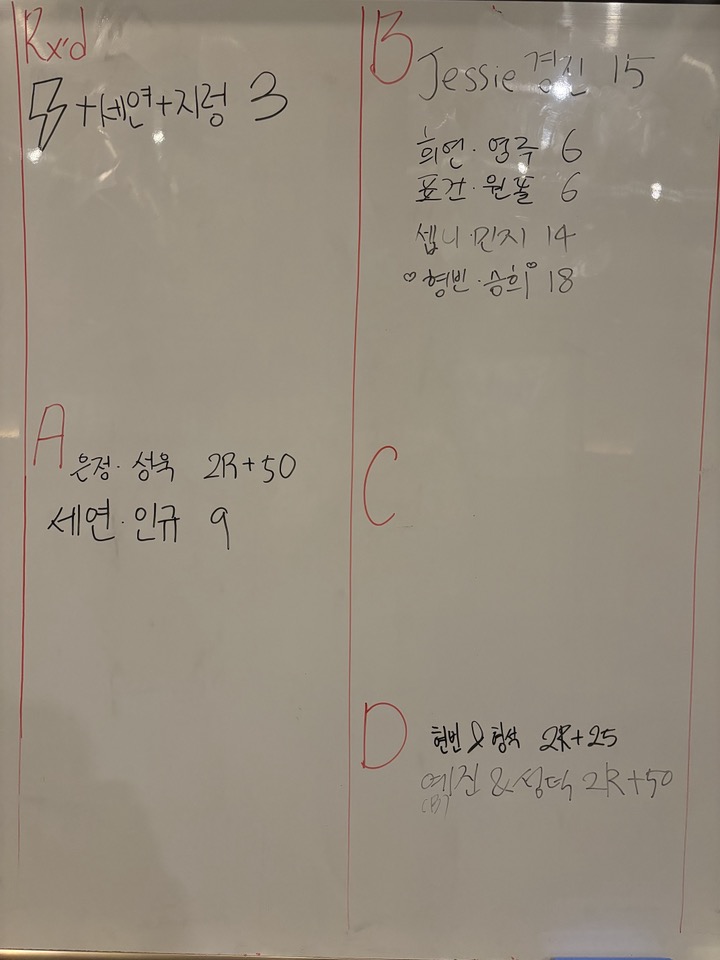 Rx'd
+세연+지렁 3
A
은정·성욱 2R+50
세연·인규 9
B
Jessie 경진 15
희연·영주 6
표건·원폴 6
셉니·민지 14
♡형빈·승희♡ 18
C
D
현빈 & 형석 2R+25
예진 & 성덕 2R+50
(B)